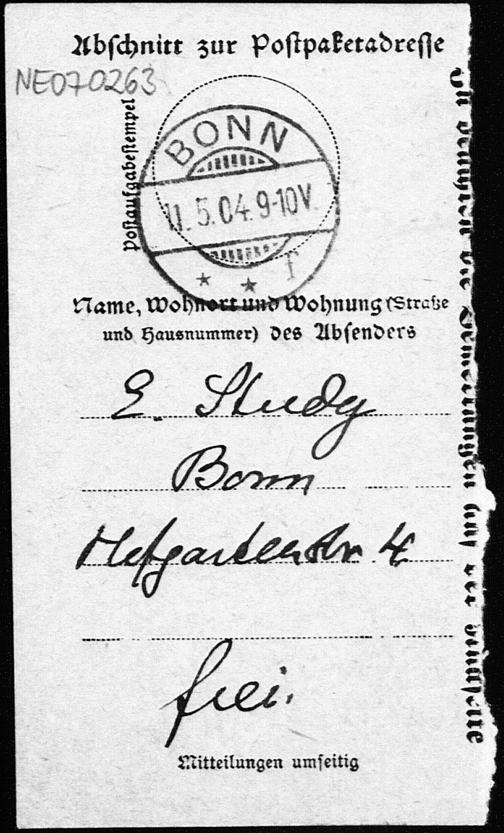 Abschnitt zur Postpaketadresse
NE070263
Postaufgabestempel
BONN
11. 5. 04. 9-10V.
* * f
Name, Wohnort und Wohnung (Straße
und Hausnummer) des Absenders
E. Study
Bonn
Hofgartenstr. 4
frei.
Mitteilungen umseitig
auf der